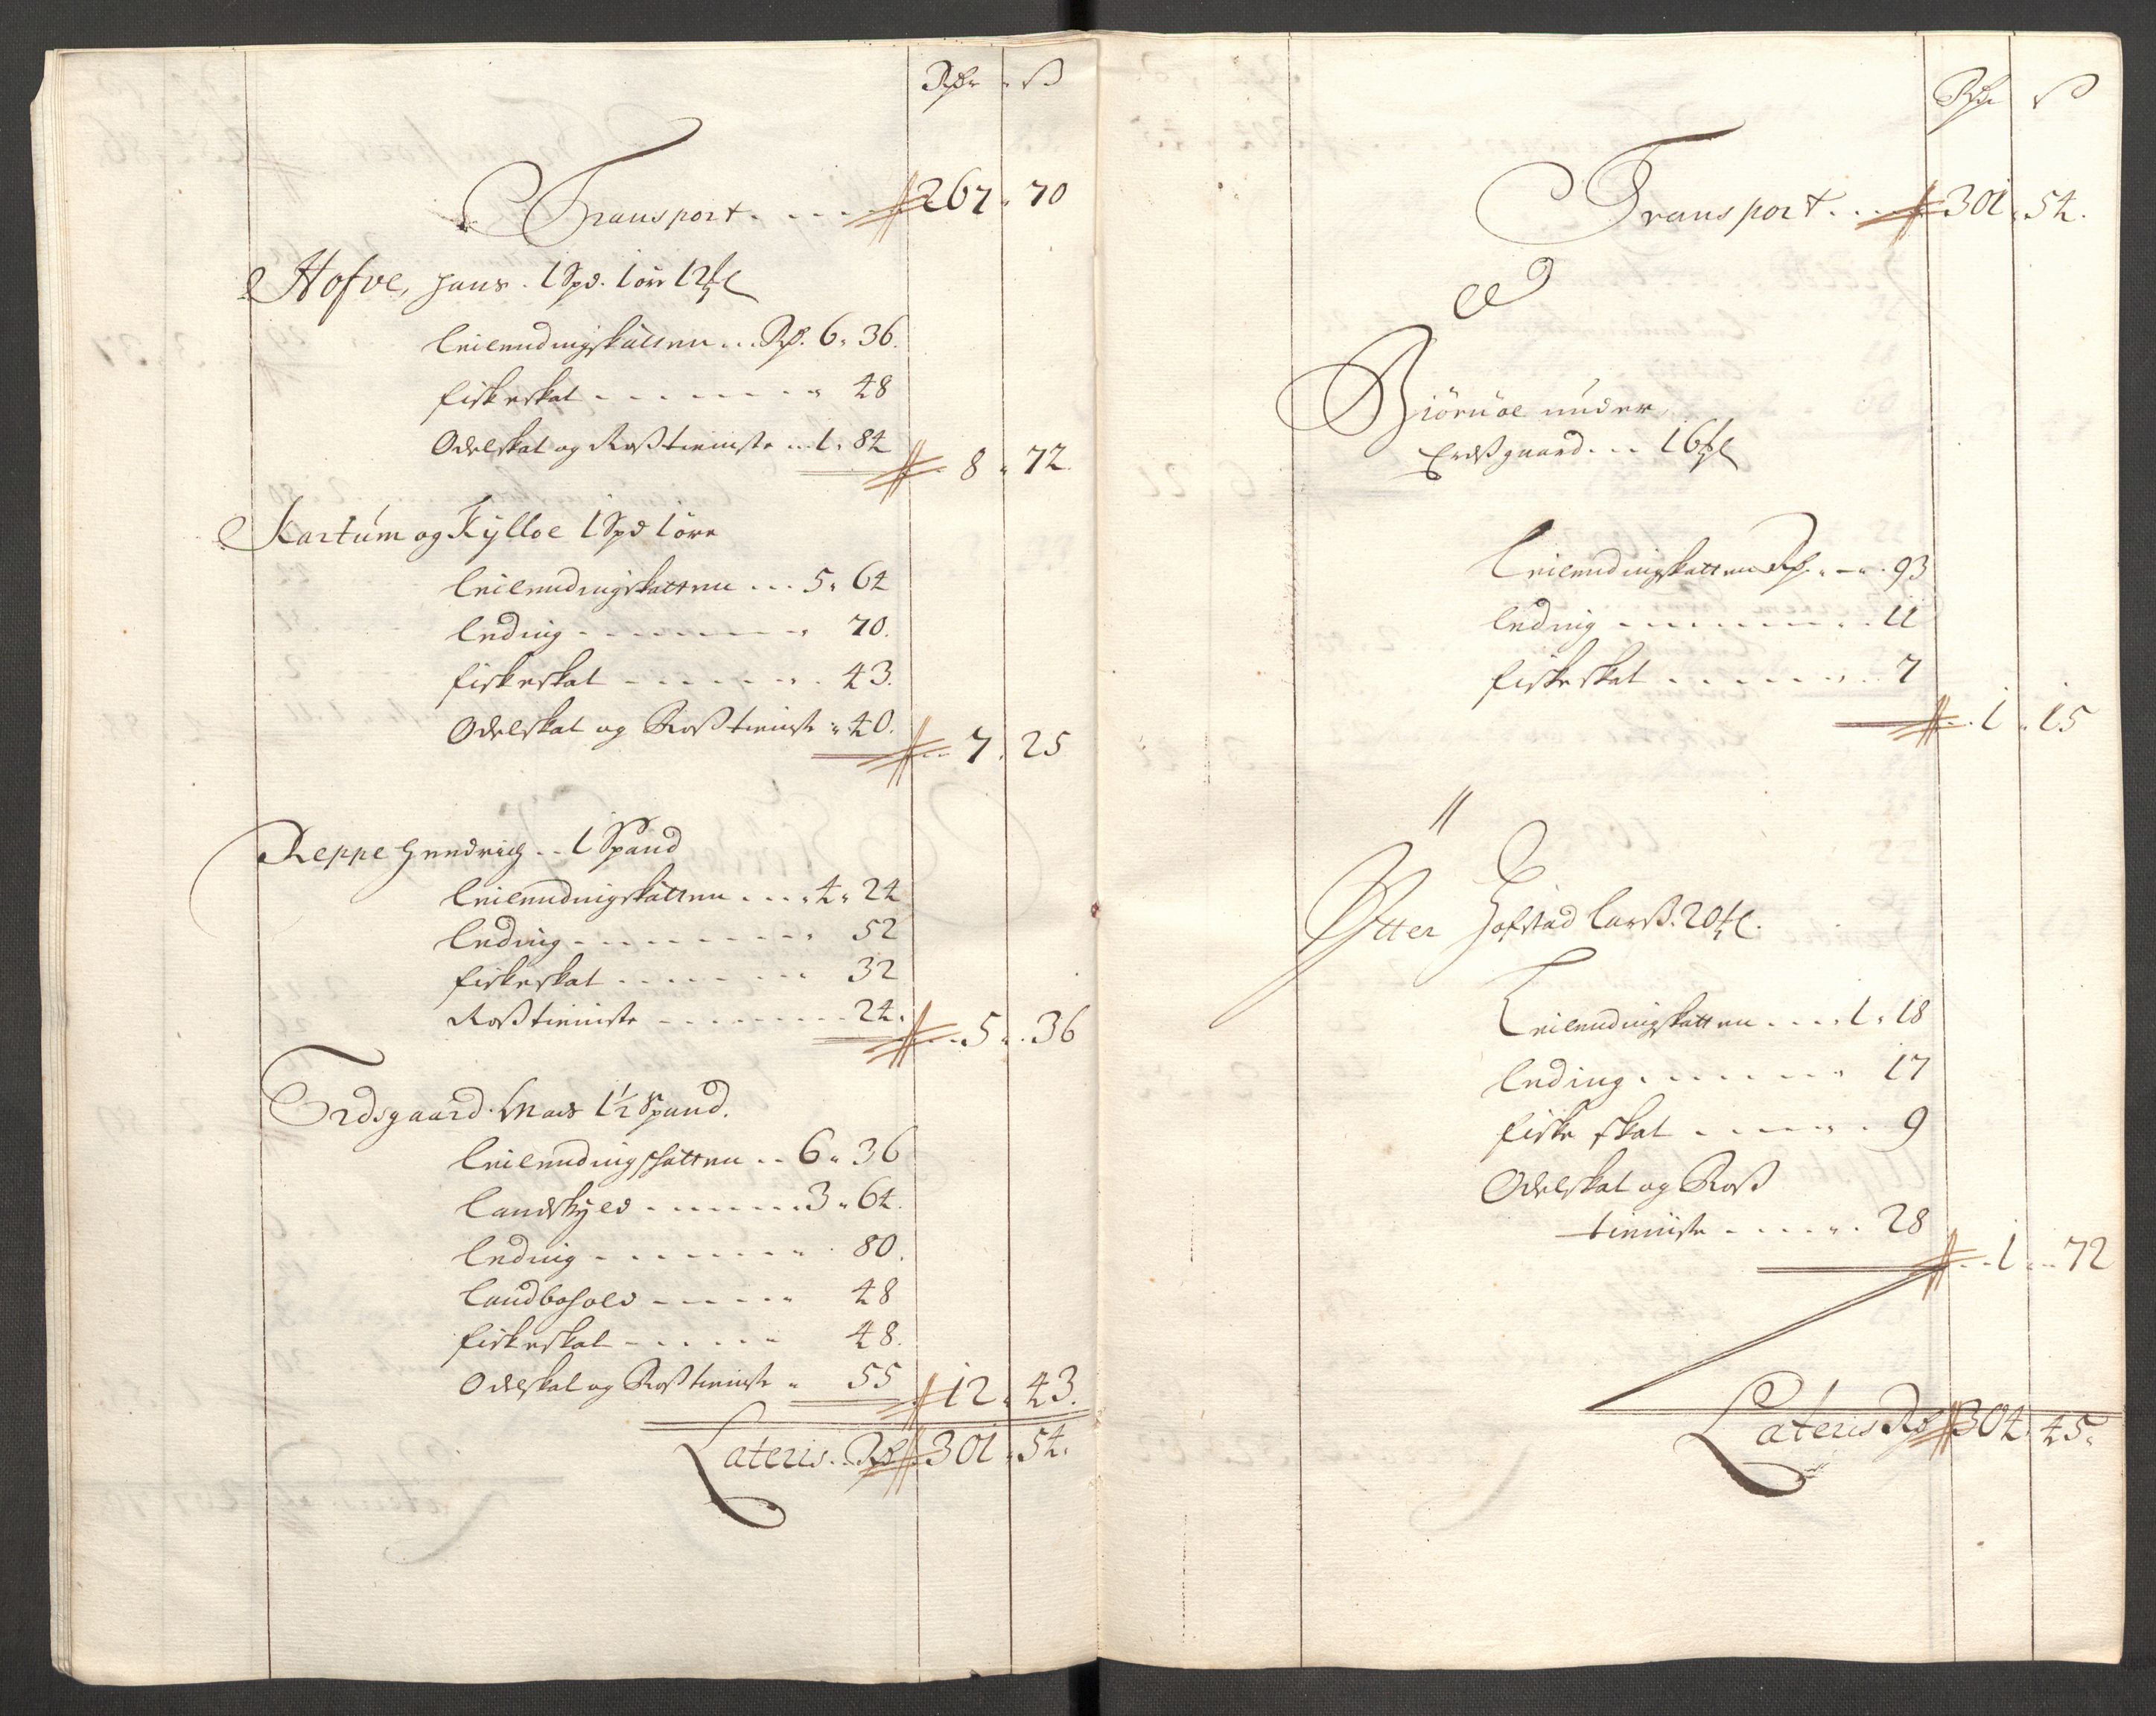 Rdr ß
Transport . . . . 267 . 70
Hofve, Hans . 1 Spd. 1 ør 12
Leilendingskatten . . . Rd. 6 . 36.
fiskeskat . . . . . . . 48
Odelskat og Rosztieniste . . . 1 . 84
8 . 72.
Kartum og Kylloe 1 Spd 1 øre
Leilendingskatten . . . 5 . 64
Leding . . . . . . . . 70.
fiskeskat . . . . . . . 43.
Odelskat og Rosztieniste . 40.
7 . 25
Reppe Hendrich . . 1 Spand
Leilendingskatten . . . . 4 . 24
Leding . . . . . . . . 52
fiskeskat . . . . . . . 32
Rosztieniste . . . . . . . . 24.
5 . 36
Erdsgaard . Mas 1½ Spand.
Leilendingskatten . . 6 . 36
Landskyld . . . . . . . 3 . 64.
Leding . . . . . . . . 80.
Landbohold . . . . . . 48
fiskeskat . . . . . . 48.
Odelskat og Rosztieniste . 55
12 . 43.
Lateris . . Rd 301 . 54.
Rdr ß
Transport . . . 301 . 54.
Biørnøe under
Erdszgaard . . . 16
Leilendingskatten Rd. . — . 93
Leding . . . . . . . . . 11
fiskeskat . . . . . . . . 7
1 . 15
Ytter Hofstad Larsz . 20
Leilendingskatten . . . . 1 . 18
Leding . . . . . . . 17
fiske skat . . . . . . 9
Odelskat og Rosz
tieniste . . . . . . 28
1 . . 72
Lateris Rd 304 . 45.